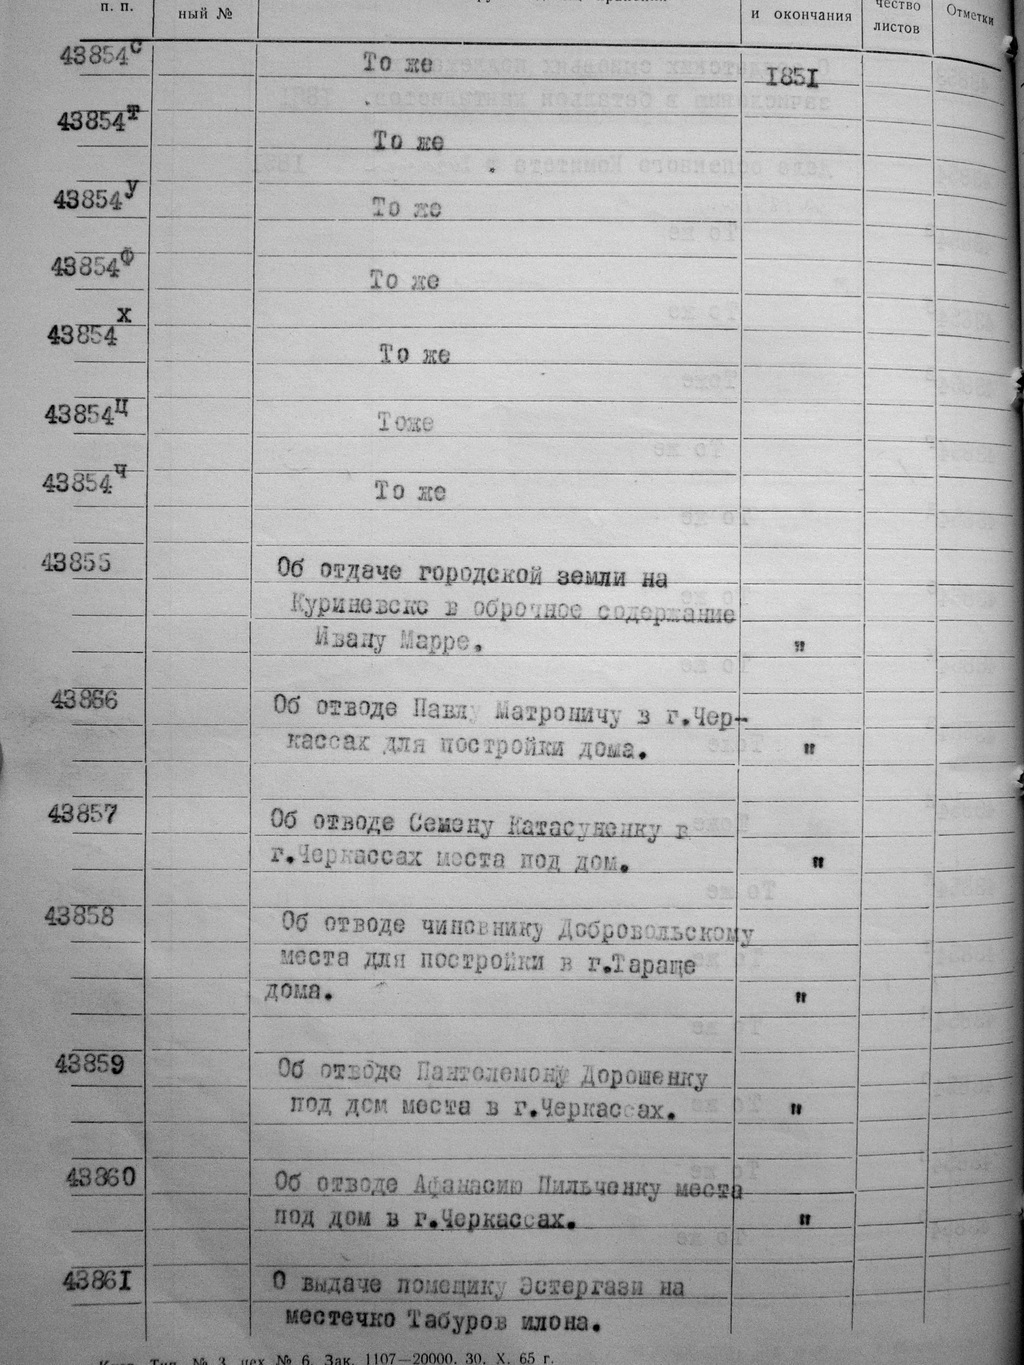 п. п. ный № и окончания чество листов Отметки
43854С То же 1851
43854Т То же
43854У То же
43854Ф То же
43854Х То же
43854Ц Тоже
43854Ч То же
43855 Об отдаче городской земли на
Куриневске в оброчное содержание
Ивану Марре. "
43856 Об отводе Павлу Матроничу в г.Чер-
кассах для постройки дома. "
43857 Об отводе Семену Катасуненку в
г.Черкассах места под дом. "
43858 Об отводе чиновнику Добровольскому
места для постройки в г.Тараще
дома. "
43859 Об отводе Пантелемону Дорошенку
под дом места в г.Черкассах. "
43860 Об отводе Афанасию Пильченку места
под дом в г.Черкассах. "
43861 О выдаче помещику Эстергази на
местечко Табуров илона.
Тип. № 3, цех № 6. Зак. 1107—20000. 30. X. 65 г.